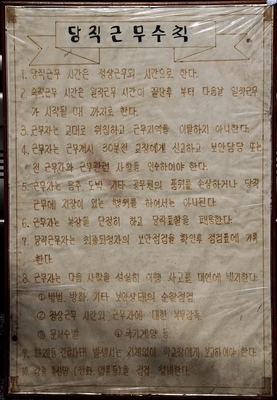 당직근무수칙
1. 당직근무 시간은 정상근무외 시간으로 한다.
2. 일직근무 시간은 일직근무 시간이 끝난후 부터 다음날 일직근무
가 시작될 때 까지로 한다.
3. 근무자는 교대로 취침하고 근무지역을 이탈하지 아니한다.
4. 근무자는 근무개시 30분전 교장에게 신고하고 보안담당 또는
전 근무자와 근무관련 사항을 인수하여야 한다.
5. 근무자는 음주, 도박 기타 공무원의 품위를 손상하거나 당직
근무에 지장이 있는 행위를 하여서는 아니된다.
6. 근무자는 복장을 단정히 하고 당직표찰을 패용한다.
7. 당직근무자는 최종퇴청자의 보안점검을 확인후 점검표에 기록
한다.
8. 근무자는 다음 사항을 성실히 이행 사고를 미연에 방지한다.
① 방범, 방화 기타 보안상태의 순찰점검
② 정상근무 시간외 근무자에 대한 복무감독
③ 문서수발 ④ 국기게양 등
9. 발생시는 지체없이 학교장에게 보고하여야 한다.
10. 각종